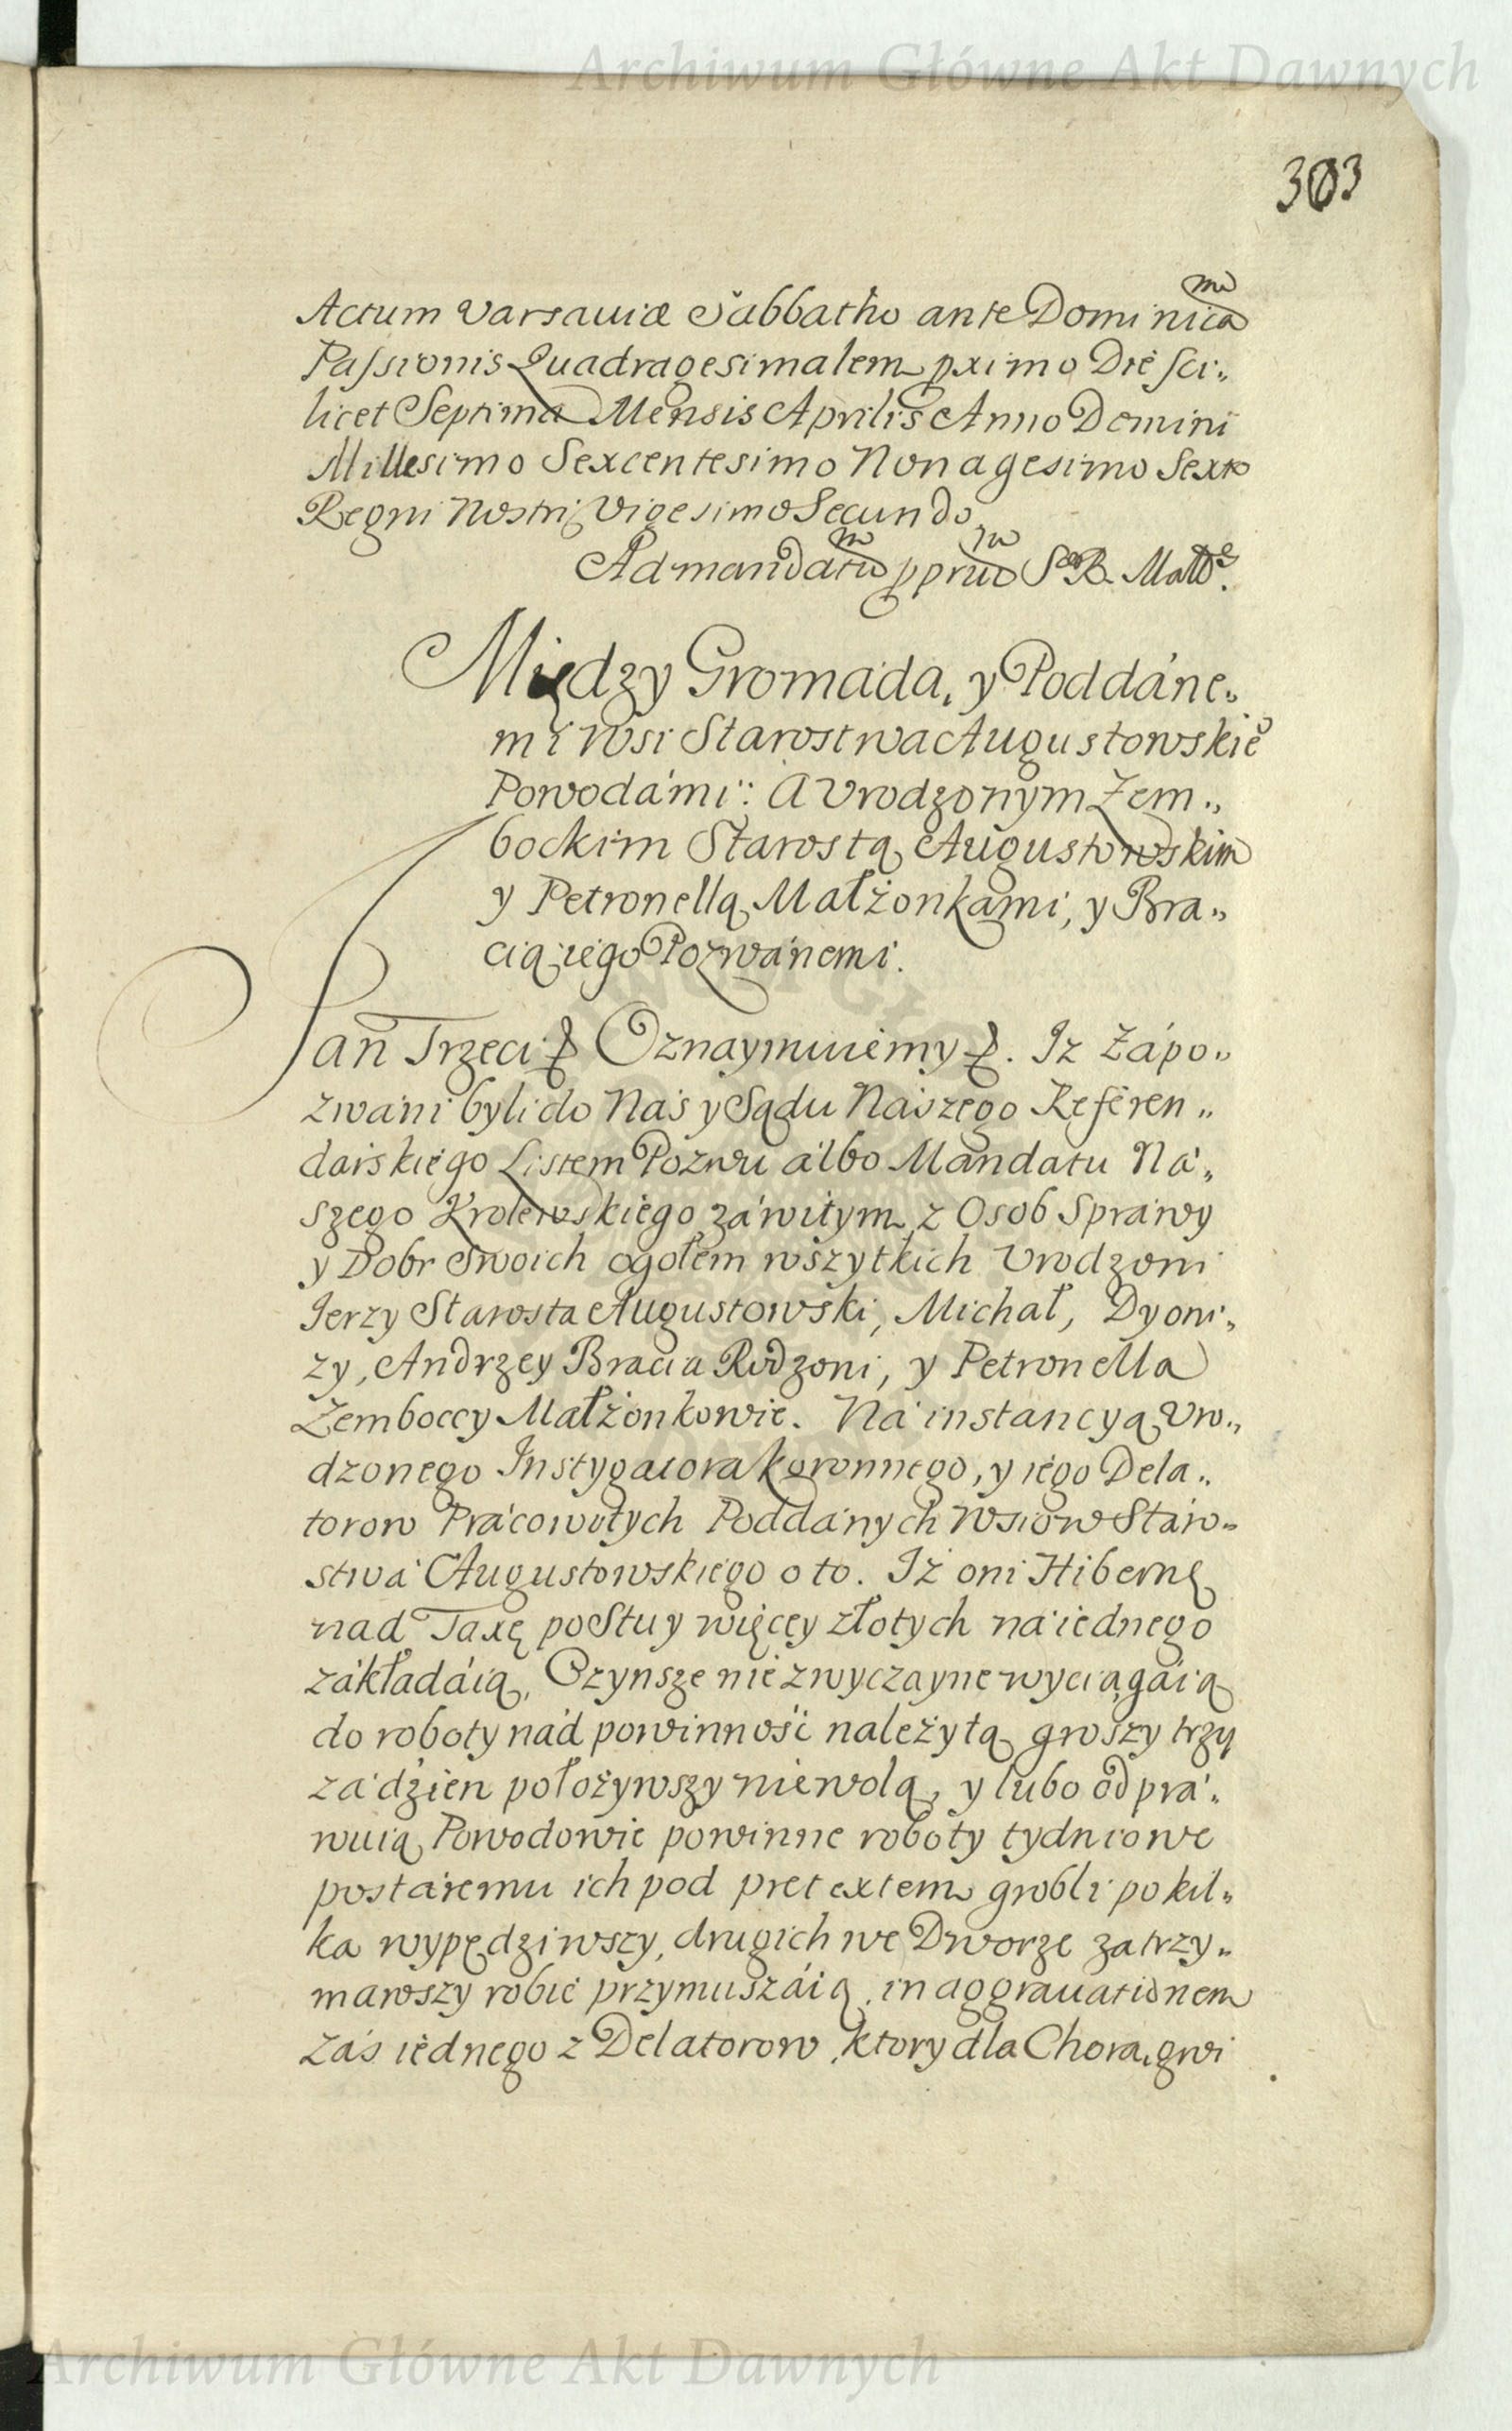 Archiwum Główne Akt Dawnych
303
Actum Varsaviæ Sabbatho ante Dominicam
Passionis Quadragesimalem pximo Die sci„
licet Septima Mensis Aprilis Anno Domini
Millesimo Sexcentesimo Nonagesimo Sexto
Regni Nostri Vigesimo Secundo
Ad mandatum pprium S R. Mattis.
Między Gromadą, y Poddáne„
mi Wsi Starostwa Augustowskieo
Powodámi: A Vrodzonym Zem„
bockim Starostą Augustowskim
y Petronellą Małżonkami, y Bra„
cią iego Pozwánemi.
Jan Trzeci Oznaymuiemy. Iz Zápo„
zwáni byli do Nas y Sądu Nászego Referen„
darskiego Listem Pozwu álbo Mandatu Ná„
szego Krolewskiego záwitym z Osob Spráwy
y Dobr Swoich ogołem wszytkich Vrodzeni
Jerzy Starosta Augustowski, Michał, Dyoni„
zy, Andrzey Bracia Rodzoni, y Petronella
Zemboccy Małżonkowie. Ná instancyą Vro„
dzonego Instygatora Koronnego, y iego Dela„
torow Prácowitych Poddánych Wsiow Stáro„
stwá Augustowskiego o to. Iż oni Hibernę
nad Taxę po Stu y więcey złotych ná iednego
zákładáią, Czynsze nie zwyczayne wyciągáią
do roboty nád powinność należytą groszy trzy
zá dzien położywszy niewolą, y lubo odprá„
wuią Powodowie powinne roboty tydniowe
postáremu ich pod pretextem grobli po kil„
ka wypędziwszy, drugich we Dworze zatrzy„
mawszy robić przymuszáią, in aggrauationem
Zás iednego z Delatorow, ktory dla Chorągwi
Archiwum Główne Akt Dawnych